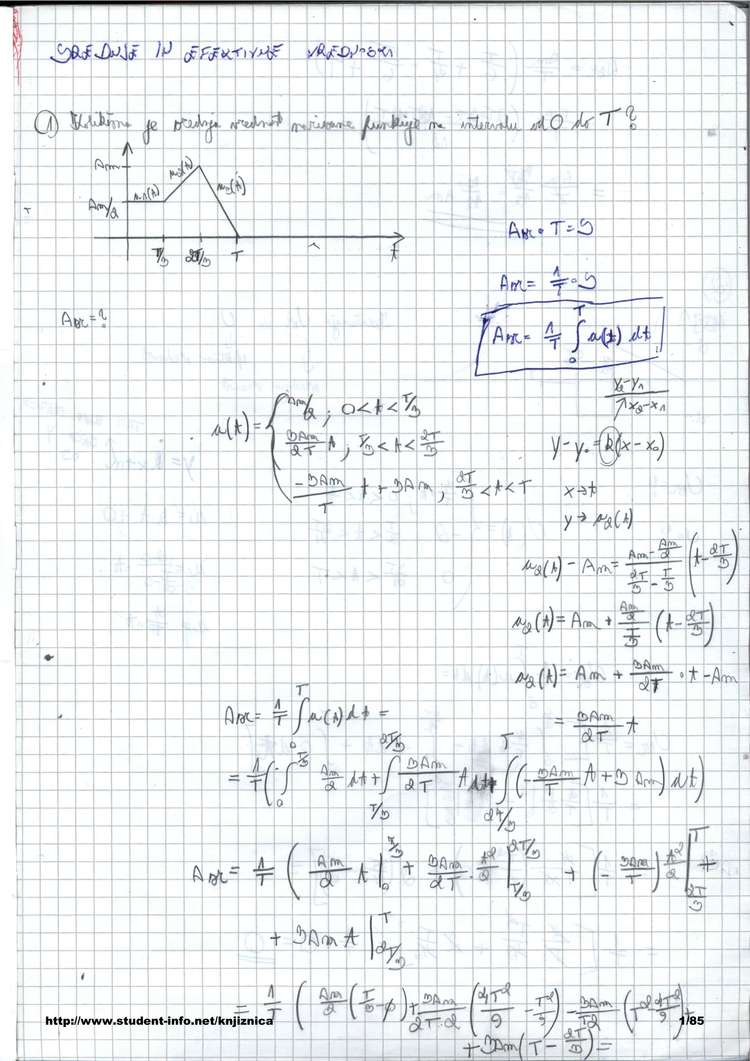 SREDNJE IN EFEKTIVNE VREDNOSTI
① Kolikšna je srednja vrednost narisane funkcije na intervalu od 0 do T?
Am
Am/2
u1(t)
u2(t)
u3(t)
T/3
2T/3
T
t
Asr · T = S
Asr = 1/T · S
Asr = 1/T ∫₀ᵀ u(t) dt
Asr = ?
u(t) = { Am/2 ; 0 < t < T/3
3Am/2T t , T/3 < t < 2T/3
-3Am/T t + 3Am , 2T/3 < t < T
y2-y1
x2-x1
y - y0 = k(x - x0)
x → t
y → u2(t)
u2(t) - Am = (Am - Am/2)/(2T/3 - T/3) (t - 2T/3)
u2(t) = Am + (Am/2)/(T/3) (t - 2T/3)
u2(t) = Am + 3Am/2T · t - Am
= 3Am/2T t
Asr = 1/T ∫₀ᵀ u(t) dt =
= 1/T ( ∫₀^T/3 Am/2 dt + ∫_T/3^2T/3 3Am/2T t dt + ∫_2T/3^T (-3Am/T t + 3Am) dt )
Asr = 1/T ( Am/2 t |₀^T/3 + 3Am/2T · t²/2 |_T/3^2T/3 + (-3Am/T) t²/2 |_2T/3^T +
+ 3Am t |_2T/3^T
= 1/T ( Am/2 (T/3 - 0) + 3Am/2T·2 (4T²/9 - T²/9) - 3Am/T2 (T² - 4T²/9) +
+ 3Am (T - 2T/3) =
http://www.student-info.net/knjiznica
1/85